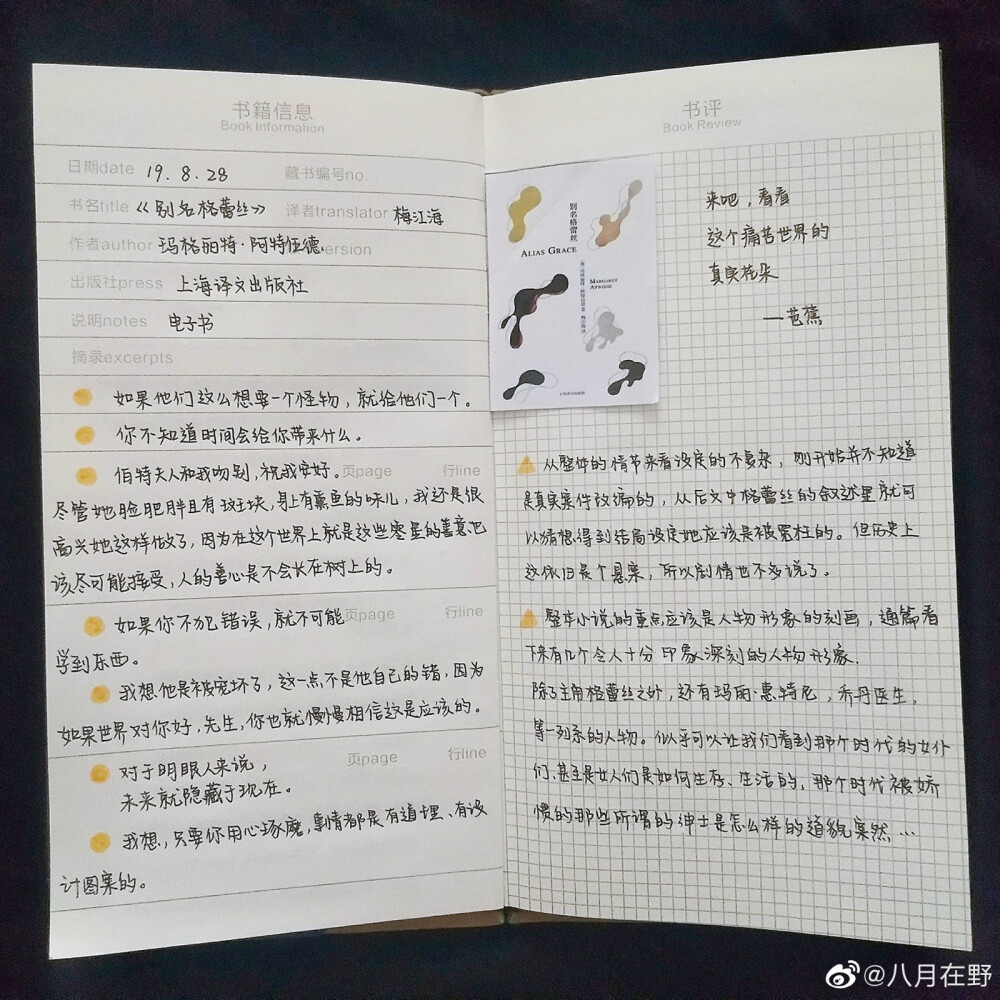 书籍信息
Book Information
日期date 19.8.28 藏书编号no.
书名title 《别名格蕾丝》 译者translator 梅江海
作者author 玛格丽特·阿特伍德 version
出版社press 上海译文出版社
说明notes 电子书
摘录excerpts
如果他们这么想要一个怪物，就给他们一个。
你不知道时间会给你带来什么。
伯特夫人和我吻别，祝我安好。页page 行line
尽管她脸肥胖且有斑块，身上有熏鱼的味儿，我还是很
高兴她这样做了，因为在这个世界上就是这些零星的善意也
该尽可能接受，人的善心是不会长在树上的。
如果你不犯错误，就不可能 页page 行line
学到东西。
我想他是被宠坏了，这一点不是他自己的错，因为
如果世界对你好，先生，你也就慢慢相信这是应该的。
对于明眼人来说， 页page 行line
未来就隐藏于现在。
我想，只要你用心琢磨，事情都是有道理、有设
计图案的。
书评
Book Review
别名格蕾丝
ALIAS GRACE
MARGARET
ATWOOD
来吧，看看
这个痛苦世界的
真实花朵
—芭蕉
从整体的情节来看设定的不复杂，刚开始并不知道
是真实案件改编的，从后文中格蕾丝的叙述里就可
以猜想得到结局设定她应该是被冤枉的。但历史上
这依旧是个悬案，所以剧情也不多说了。
整本小说的重点应该是人物形象的刻画，通篇看
下来有几个令人十分印象深刻的人物形象.
除了主角格蕾丝之外，还有玛丽·惠特尼，乔丹医生，
等一列系的人物。似乎可以让我们看到那个时代的女仆
们、甚至是女人们是如何生存、生活的，那个时代被娇
惯的那些所谓的绅士是怎么样的道貌岸然…
@八月在野